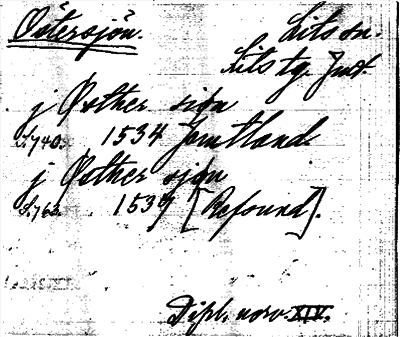 Östersjön.
Lits sn.
Lits tg. Jmt.
j Østher siøn
S. 740. 1534 Jemtland.
j Østher siøn
S. 763. 1537 [Refsund].
Dipl. norv. XIV.